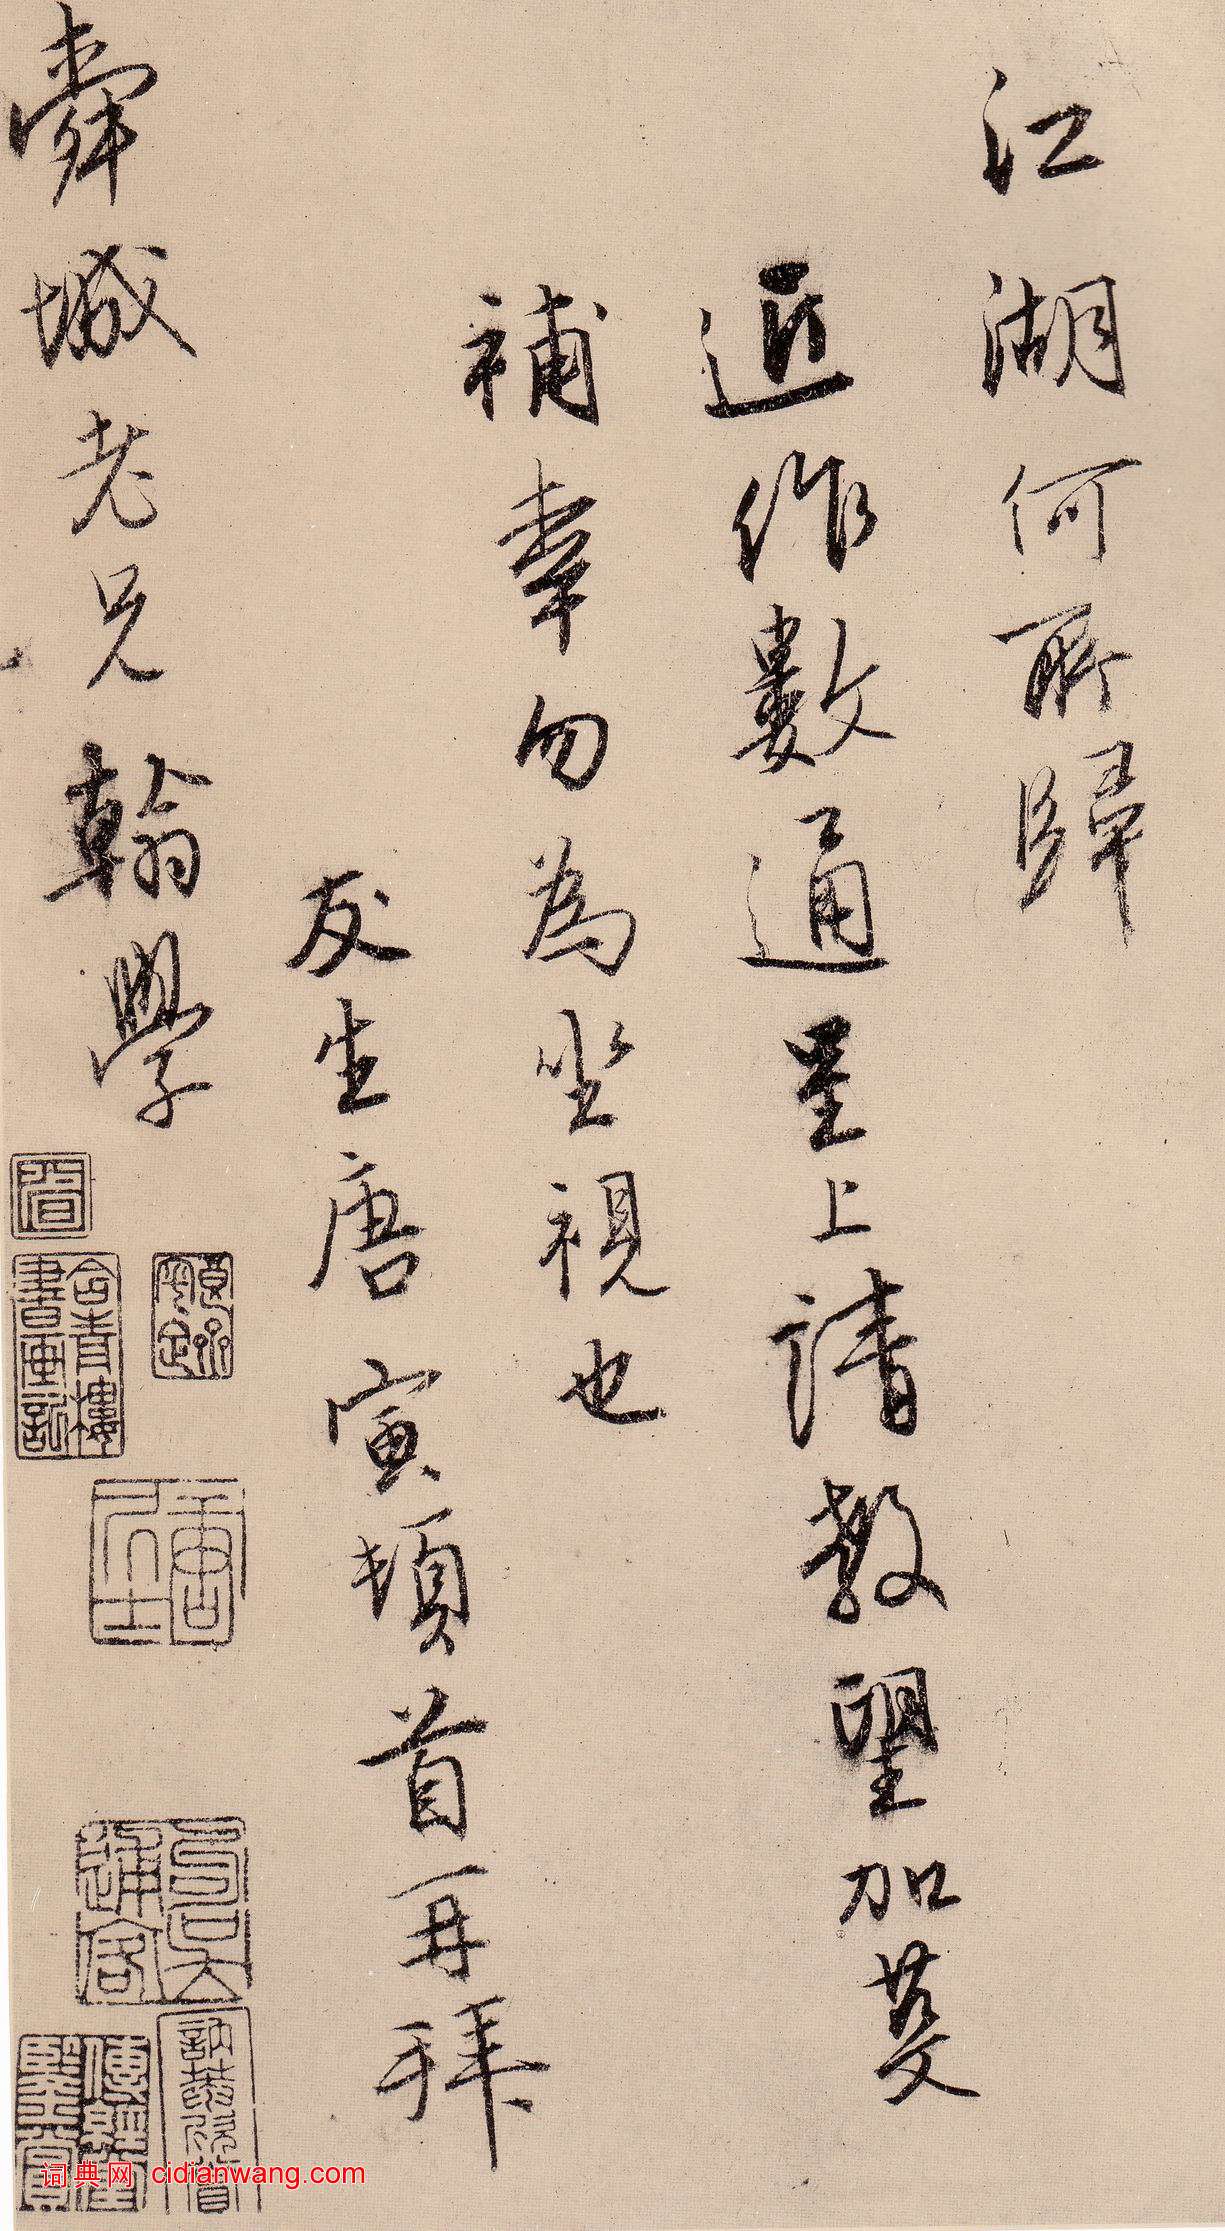 江湖何所歸
近作數通呈上請教望加芟
補幸勿為坐視也
友生唐寅頓首再拜
舜城老兄翰學
唐居士
吳趨
書畫記
詞典网 cidianwang.com